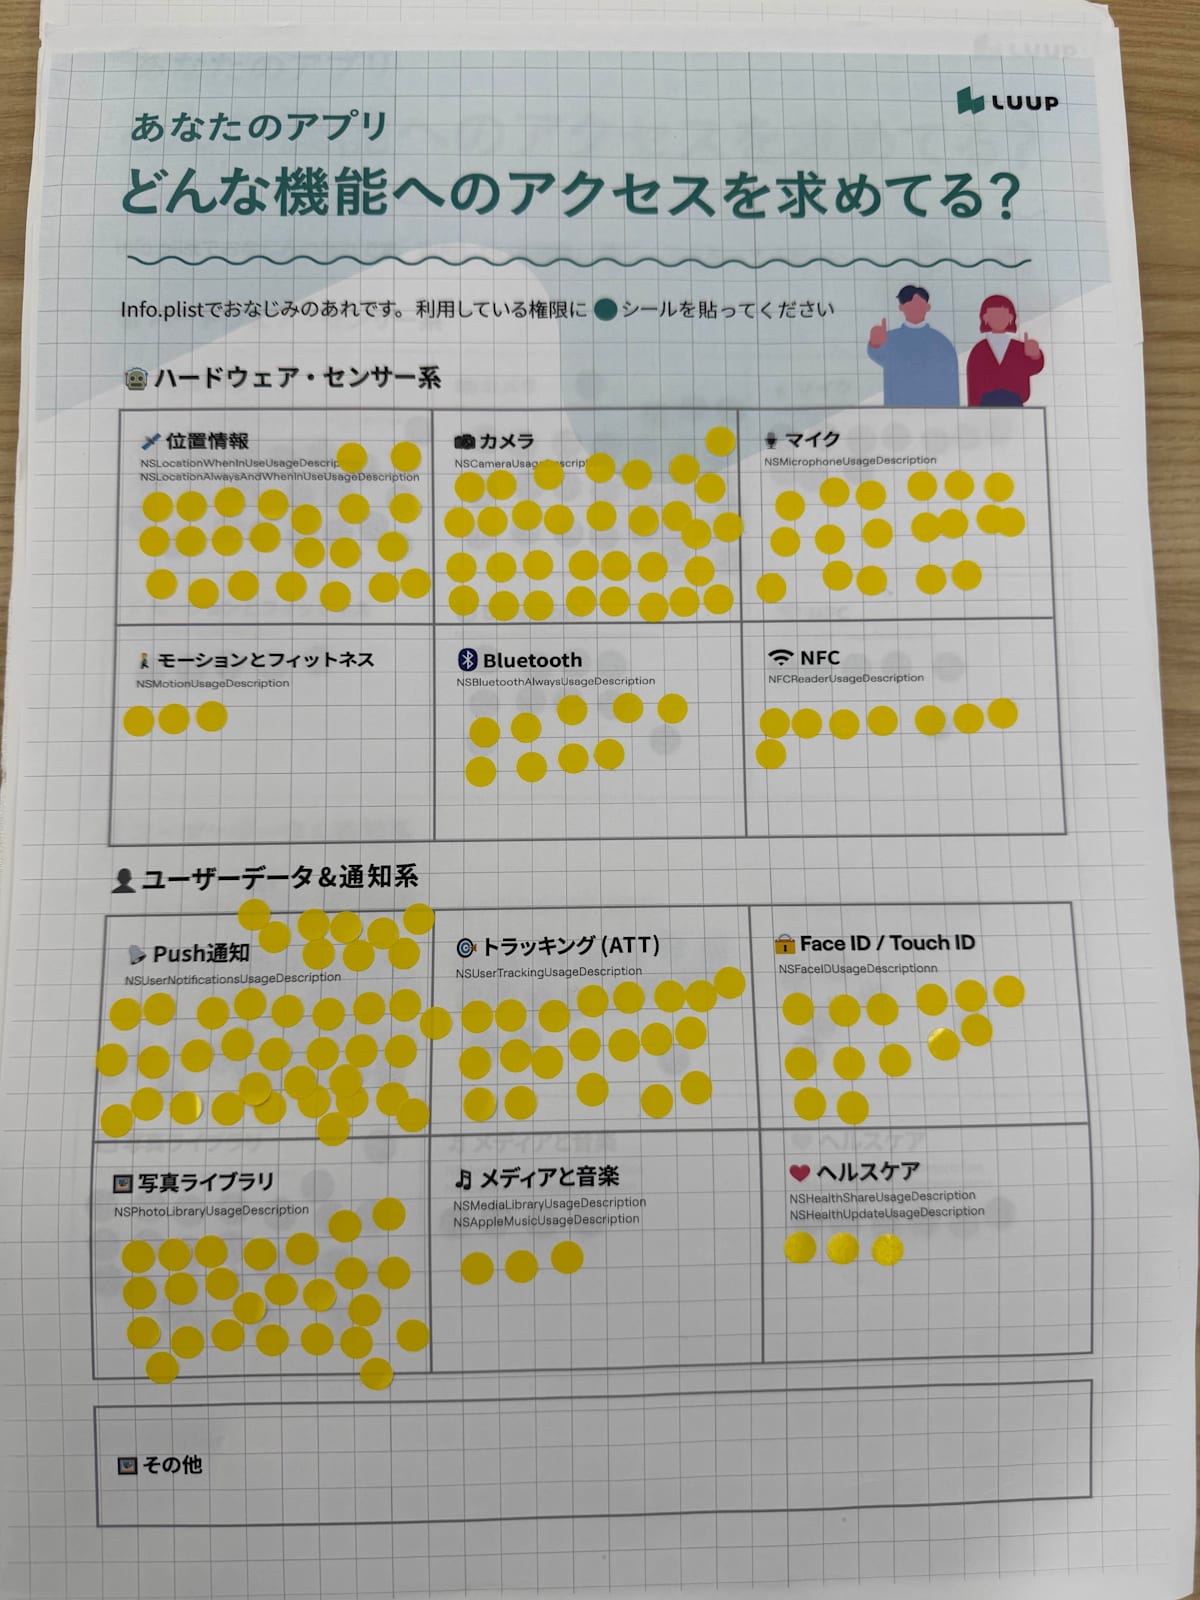 LUUP
あなたのアプリ
どんな機能へのアクセスを求めてる?
Info.plistでおなじみのあれです。利用している権限に シールを貼ってください
ハードウェア・センサー系
位置情報
NSLocationWhenInUseUsageDescrip
NSLocationAlwaysAndWhenInUseUsageDescription
カメラ
NSCameraUsageDescript
マイク
NSMicrophoneUsageDescription
モーションとフィットネス
NSMotionUsageDescription
Bluetooth
NSBluetoothAlwaysUsageDescription
NFC
NFCReaderUsageDescription
ユーザーデータ&通知系
Push通知
NSUserNotificationsUsageDescription
トラッキング (ATT)
NSUserTrackingUsageDescription
Face ID / Touch ID
NSFaceIDUsageDescriptionn
写真ライブラリ
NSPhotoLibraryUsageDescription
メディアと音楽
NSMediaLibraryUsageDescription
NSAppleMusicUsageDescription
ヘルスケア
NSHealthShareUsageDescription
NSHealthUpdateUsageDescription
その他